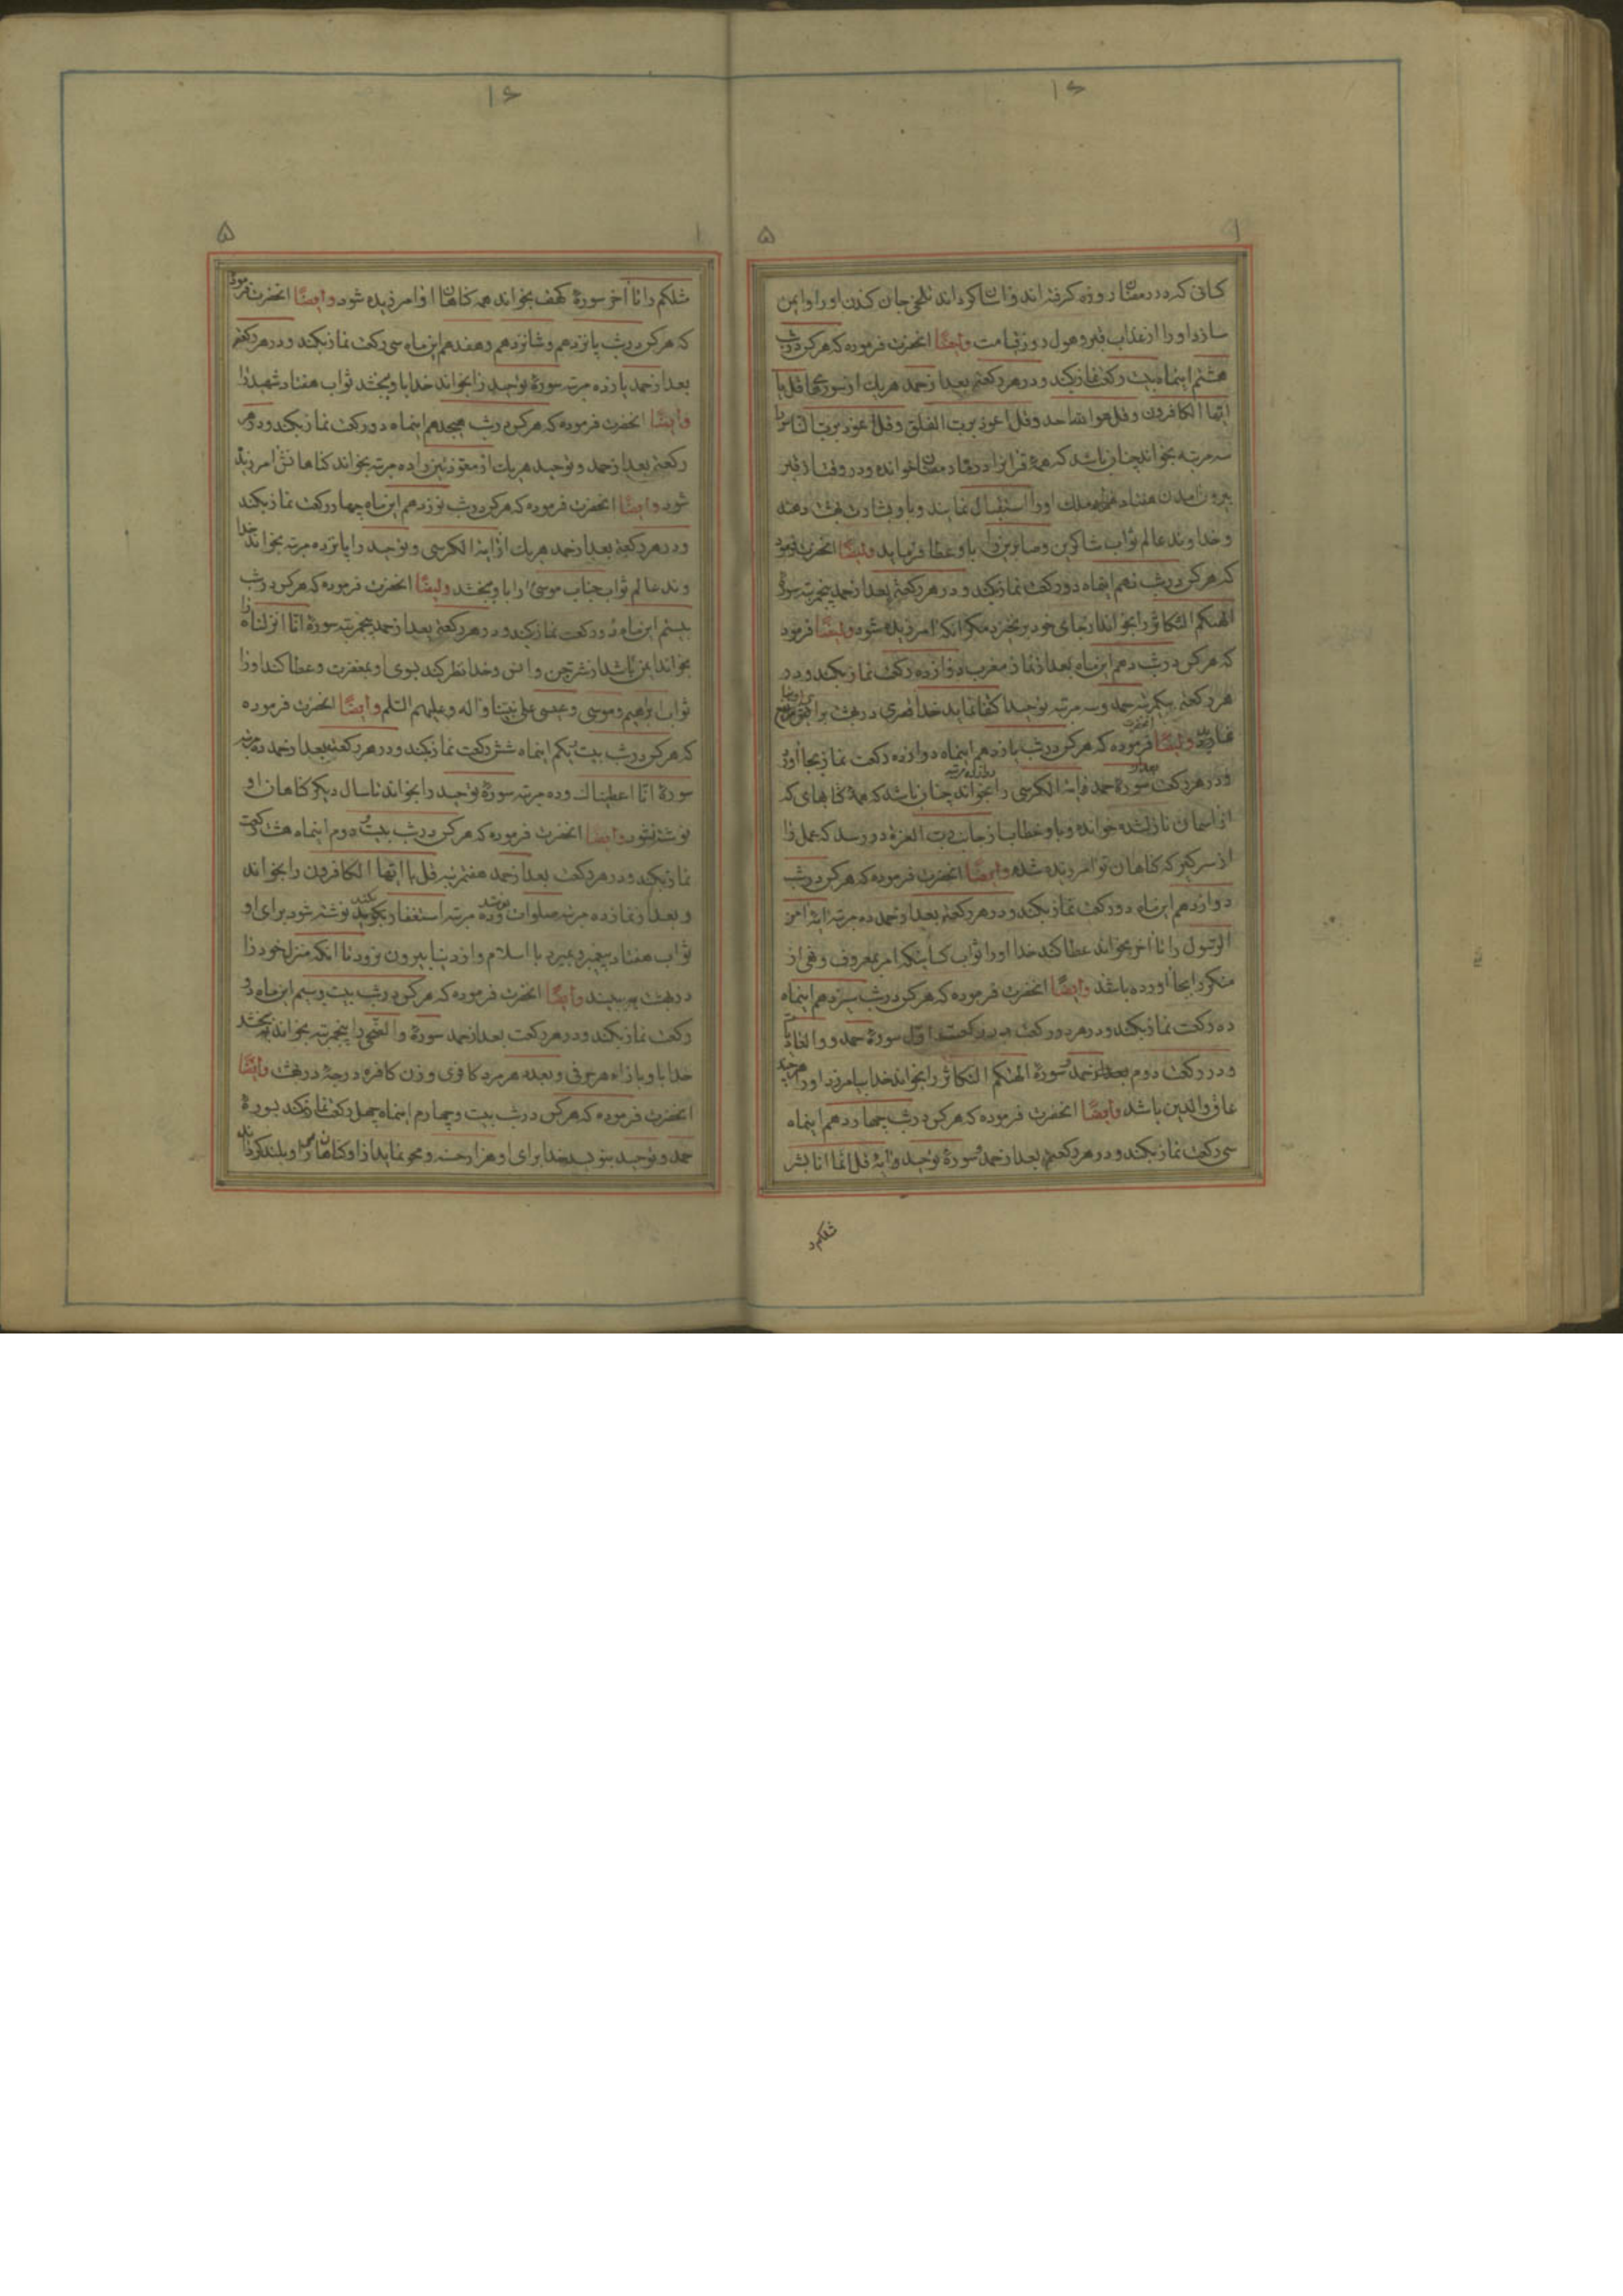 ۱۶
۵
کسانی که در رمضان روزه گرفته اند و آسان کرداند تلخی جان کندن او را و ایمن
سازد او را از عذاب قبر و هول روز قیامت وایضًا انحضرت فرموده که هر کس در شب
هشتم اینماه بیست رکعت نماز بکند و در هر رکعتی بعد از حمد هر یک از سورهای قل یا
ایّها الکافرون و قل هو الله احد و قل اعوذ بربّ الفلق و قل اعوذ بربّ النّاس را
سه مرتبه بخواند چنان باشد که همهٔ قرانرا در ماه رمضان خوانده و در وقت از قبر
بیرون آمدن هفتاد هزار ملک او را استقبال نمایند و باو بشارت بهشت دهند
و خداوند عالم ثواب شاکرین و صابرین را باو عطا فرماید وایضًا انحضرت فرمود
که هر کس در شب نهم اینماه دو رکعت نماز بکند و در هر رکعتی بعد از حمد پنجمرتبه سورهٔ
الهیکم التّکاثر را بخواند از جای خود بر نخیزد مگر آنکه امرزیده شود وایضًا فرمود
که هر کس در شب دهم این ماه بعد از نماز مغرب دوازده رکعت نماز بکند و در
هر رکعتی یکمرتبه حمد و سه مرتبه توحید اکتفا نماید خدا قصری در بهشت برای او رفیع
نماید وایضًا انحضرت فرموده که هر کس در شب یازدهم اینماه دوازده رکعت نماز بجا آورد
و در هر رکعت بعد از سورهٔ حمد دوازده مرتبه آیة الکرسی را بخواند چنان باشد که همهٔ کتابهای که
از آسمان نازل شده خوانده و باو خطاب از جانب ربّ العزة در رسد که عمل را
از سر بگیر که کناهان تو امرزیده شده وایضًا انحضرت فرموده که هر کس در شب
دوازدهم این ماه دو رکعت نماز بکند و در هر رکعتی بعد از حمد ده مرتبه آیهٔ امن
الرّسول را تا آخر بخواند عطا کند خدا او را ثواب کسانیکه امر بمعروف و نهی از
منکر را بجا آورده باشد وایضًا انحضرت فرموده که هر کس در شب سیزدهم اینماه
ده رکعت نماز بکند و در هر دو رکعت در رکعت اوّل سورهٔ حمد و والعادیات
و در رکعت دوم بعد از حمد سورهٔ الهیکم التّکاثر را بخواند خدا بیامرزد او را هر چند
عاق والدین باشد وایضًا انحضرت فرموده که هر کس در شب چهاردهم اینماه
سی رکعت نماز بکند و در هر رکعتی بعد از حمد سورهٔ توحید و آیهٔ قل انّما انا بشر
مثلکم
۱۶
۱ ۵
مثلکم را تا آخر سورهٔ کهف بخواند همه کناهان او امرزیده شود وایضًا انحضرت فرموده
که هر کس در شب پانزدهم و شانزدهم و هفدهم این ماه سی رکعت نماز بکند و در هر رکعتی
بعد از حمد یازده مرتبه سورهٔ توحید را بخواند خدا باو بخشد ثواب هفتاد شهید را
وایضًا انحضرت فرموده که هر کس در شب هیجدهم اینماه دو رکعت نماز بکند و در هر
رکعتی بعد از حمد و توحید هر یک از معوّذتین را ده مرتبه بخواند کناهانش امرزیده
شود وایضًا انحضرت فرموده که هر کس در شب نوزدهم این ماه چهار رکعت نماز بکند
و در هر رکعتی بعد از حمد هر یک از آیة الکرسی و توحید را پانزده مرتبه بخواند خدا
وند عالم ثواب جناب موسی را باو بخشد وایضًا انحضرت فرموده که هر کس در شب
بیستم این ماه دو رکعت نماز بکند و در هر رکعتی بعد از حمد پنجمرتبه سورهٔ انّا انزلناه را
بخواند ایمن باشد از شرّ جن و انس و خدا نظر کند بسوی او بمغفرت و عطا کند او را
ثواب ابراهیم و موسی و عیسی علی نبیّنا و اله و علیهم السّلم وایضًا انحضرت فرموده
که هر کس در شب بیست و یکم اینماه شش رکعت نماز بکند و در هر رکعتی بعد از حمد ده مرتبه
سورهٔ انّا اعطیناک و ده مرتبه سورهٔ توحید را بخواند تا سال دیگر کناهان او
نوشته نشود وایضًا انحضرت فرموده که هر کس در شب بیست و دوم اینماه هشت رکعت
نماز بکند و در هر رکعت بعد از حمد هفتمرتبه قل یا ایّها الکافرون را بخواند
و بعد از نماز ده مرتبه صلوات بفرستد و ده مرتبه استغفار بکند نوشته شود برای او
ثواب هفتاد پیغمبر و بمیرد با اسلام و از دنیا بیرون نرود تا آنکه منزل خود را
در بهشت به بیند وایضًا انحضرت فرموده که هر کس در شب بیست و سیم این ماه دو
رکعت نماز بکند و در هر رکعت بعد از حمد سورهٔ والضّحی را پنجمرتبه بخواند بخشد
خدا باو بازاء هر حرفی و بعدد هر مرد کافری و زن کافره درجهٔ در بهشت وایضًا
انحضرت فرموده که هر کس در شب بیست و چهارم اینماه چهل رکعت نماز بکند بسورهٔ
حمد و توحید بنویسد خدا برای او هزار حسنه و محو نماید از او کناهان را و بلند گرداند